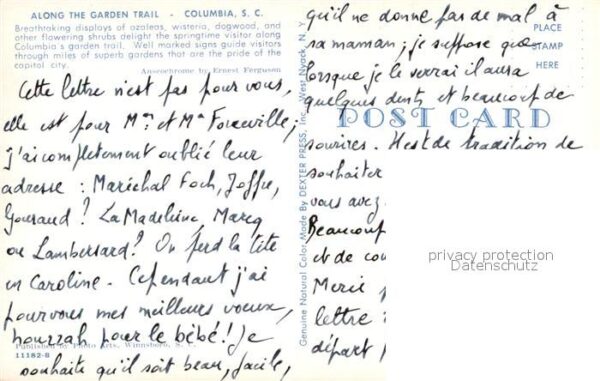 ALONG THE GARDEN TRAIL - COLUMBIA, S. C.
Breathtaking displays of azaleas, wisteria, dogwood, and
other flowering shrubs delight the springtime visitor along
Columbia's garden trail. Well marked signs guide visitors
through miles of superb gardens that are the pride of the
capitol city.
Anscochrome by Ernest Ferguson
Cette lettre n'est pas pour vous,
elle est pour Mr et Me Forceville,
j'ai complètement oublié leur
adresse : Maréchal Foch, Joffre,
Gouraud? La Madeleine, Marcq
ou Lambersard? On perd la tête
en Caroline. Cependant j'ai
pour vous mes meilleurs voeux,
hourrah pour le bébé! Je
Published by Photo Arts, Winnsboro, S. C.
11182-B
souhaite qu'il soit beau, facile,
Genuine Natural Color Made By DEXTER PRESS, Inc. West Nyack, N. Y.
qu'il ne donne pas de mal à
sa maman; je suppose que
lorsque je le verrai il aura
quelques dents et beaucoup de
PLACE
STAMP
HERE
POST CARD
sourires. Il est de tradition de
souhaiter
vous avez
Beaucoup
et de cou
Merci
lettre
départ
privacy protection
Datenschutz